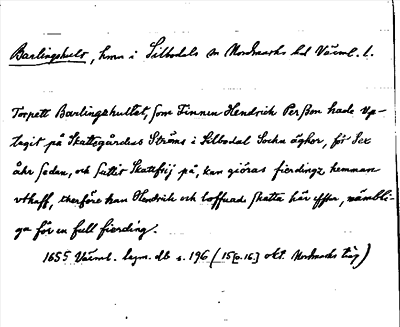 Barlingshult, hmn i Silbodals sn Nordmarks hd Värml. l.
Torpett Barlingshultet, som Finnen Hendrich Person hade Up-
tagit på Skattegårdens Ströms i Silbodal Sochn ägher, för Sex
åhr sedan, och suttit Skattfrij på, kan giöras fierdingz hemman
uthaff, therföre han Hendrich och loffuade skatta här effter, nämbli-
ga för en full fierding.
1655 Värml. lagm. db s. 196 (15[o.16] okt. Nordmarks ting)